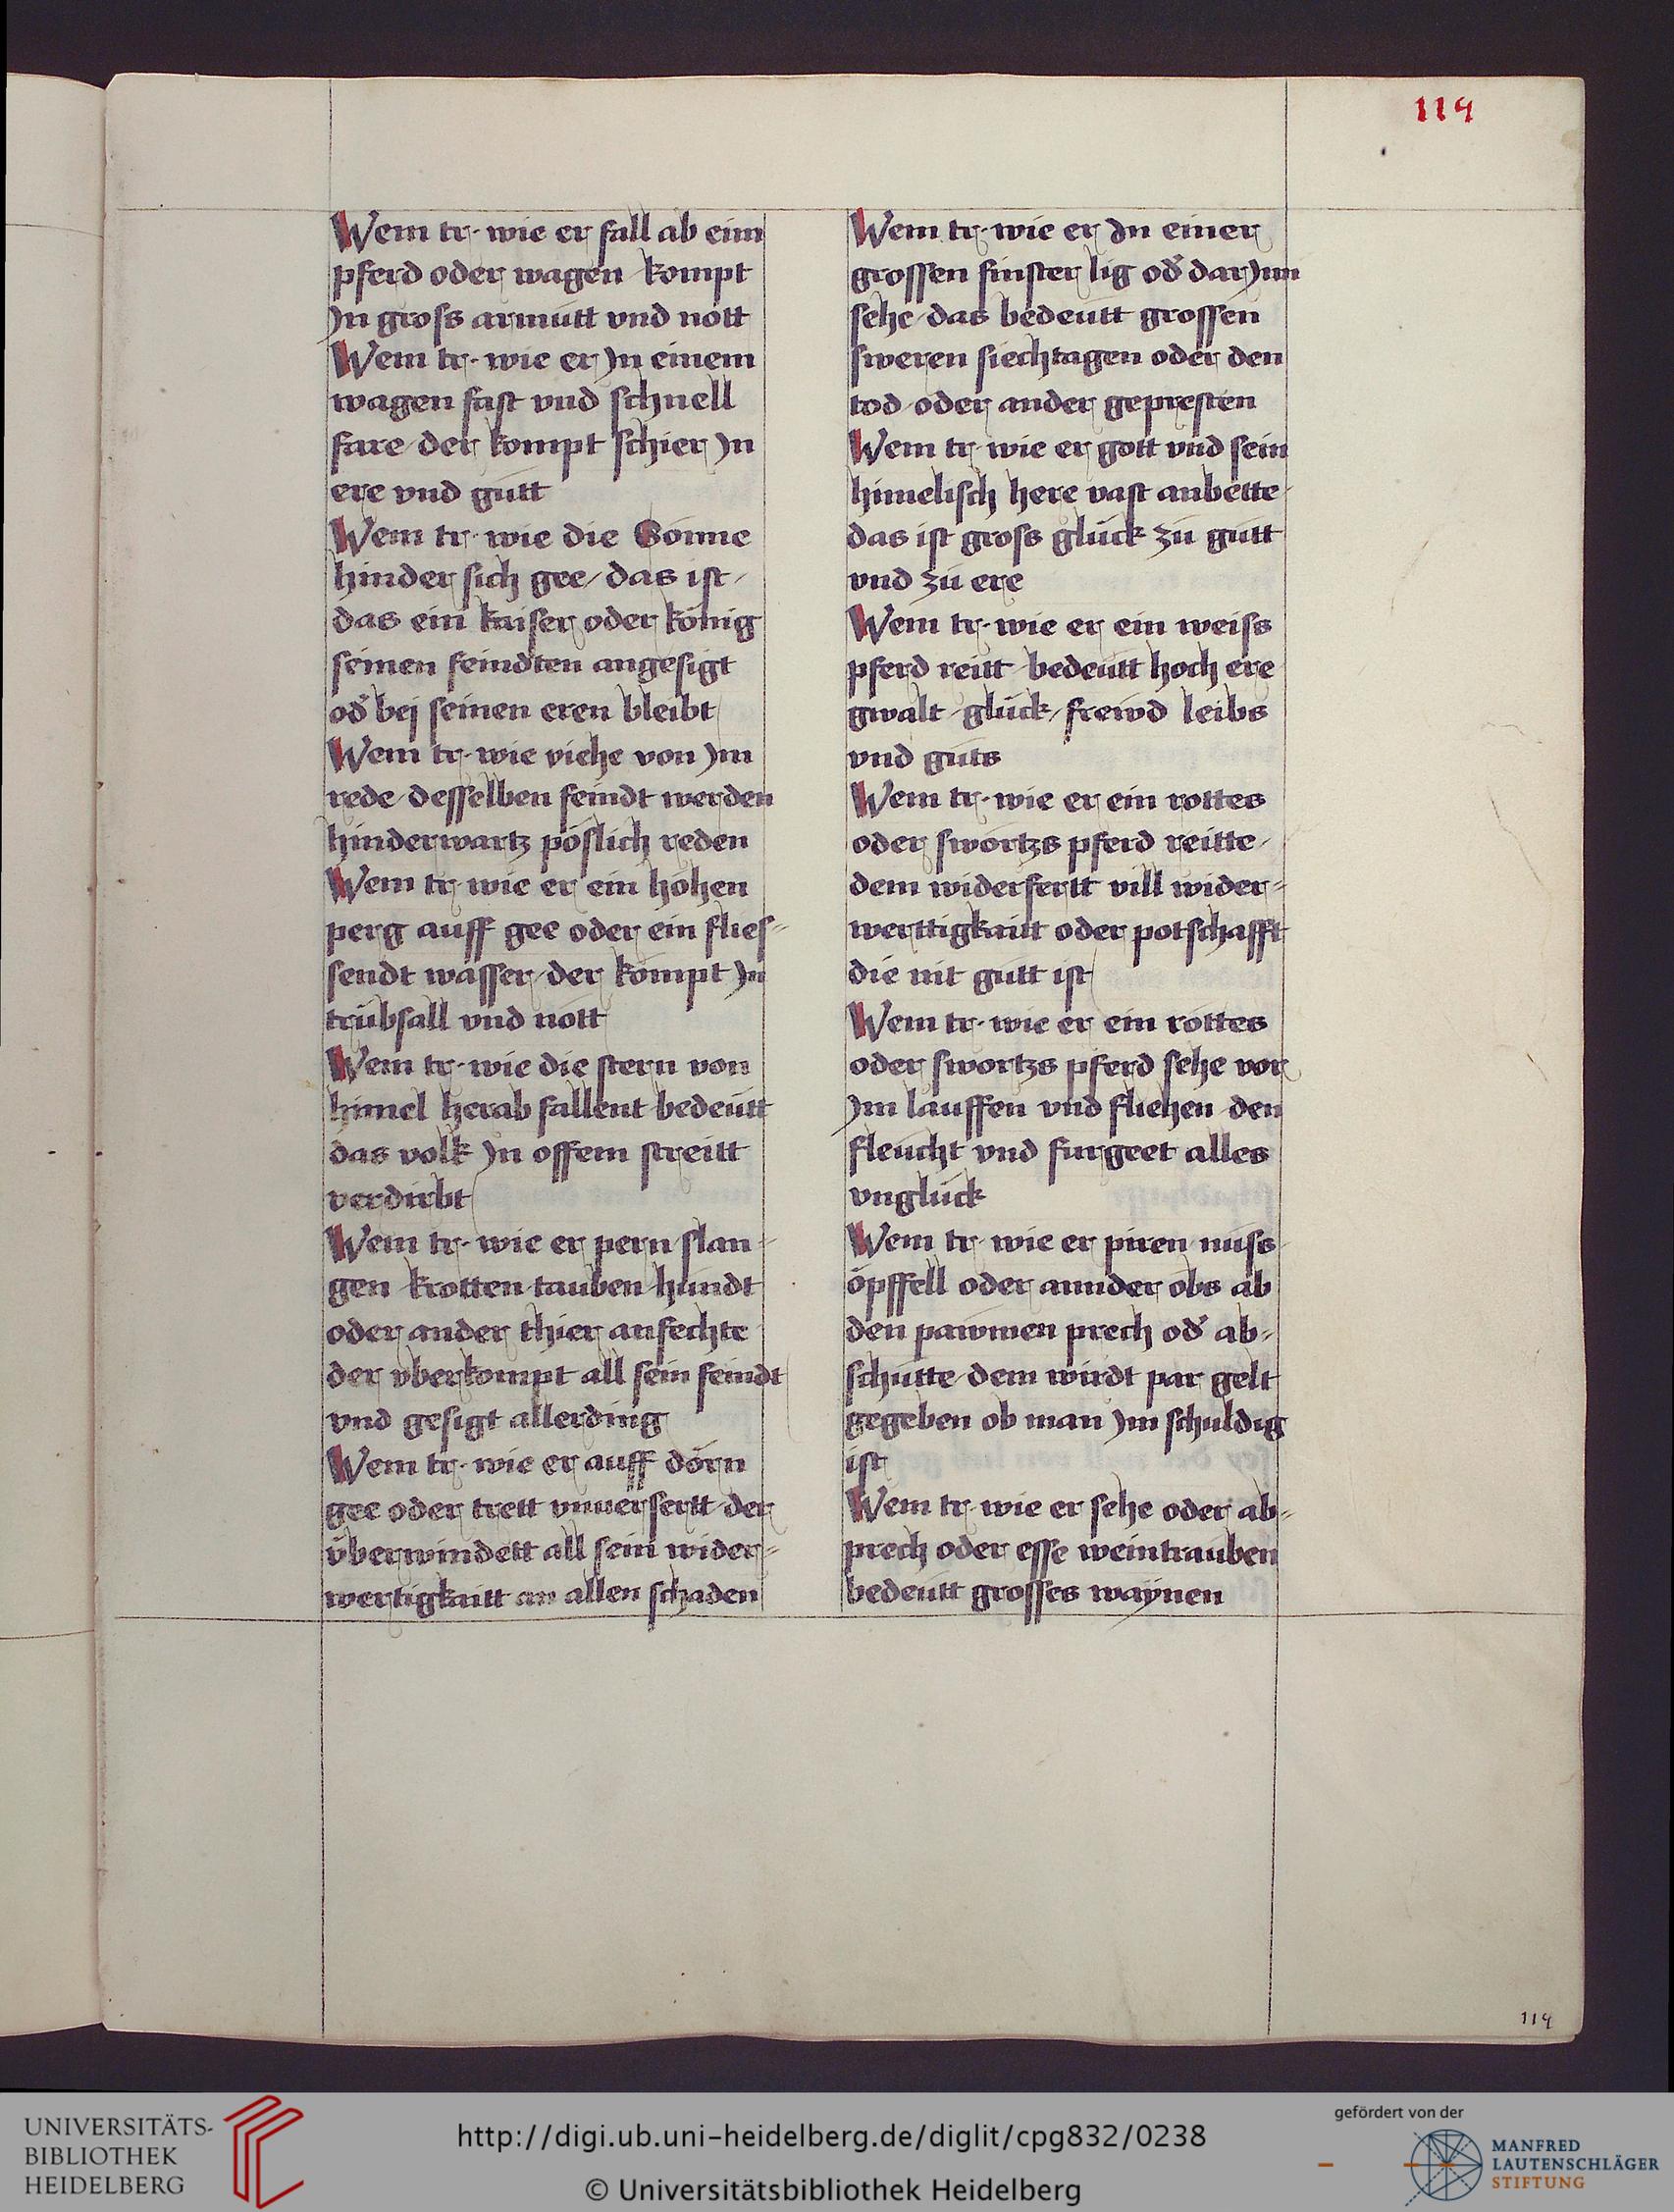 114
Wem tr. wie er fall ab eim
pferd oder wagen kompt
Jn gross armutt vnd nott
Wem tr. wie er Jn einem
wagen fast vnd schnell
fare / der kompt schier Jn
ere vnd gutt
Wem tr. wie die Sonne
hinder sich gee / das ist /
das ein kaiser oder könig
seinen feindten angesigt
od̛ bej seinen eren bleibt
Wem tr. wie viehe von Jm
rede / desselben feindt werden
hinderwartz pöslich reden
Wem tr. wie er ein hohen
perg auff gee oder ein flies=
sendt wasser / der kompt Jn
trübsall vnd nott
Wem tr. wie die stern von
himel herab fallent bedeütt
das volk Jn offem streitt
verdirbt
Wem tr. wie er pern slan=
gen krotten tauben hundt
oder ander thier anfechte
der vberkompt all sein feindt
vnd gesigt allerding
Wem tr. wie er auff dörn
gee oder trett vnuersertt der
überwindett all sein wider=
wertigkaitt an allen schaden
Wem tr. wie er Jn einer
grossen finster lig od̛ darJnn
sehe / das bedeutt grossen
sweren siechtagen oder den
tod / oder ander gepresten
Wem tr. wie er gott vnd sein
himelisch here vast anbette
das ist gross glück zu gutt
vnd zu ere
Wem tr. wie er ein weiss
pferd reitt / bedeutt hoch ere
gwalt / glück / frewd leibs
vnd guts
Wem tr. wie er ein rottes
oder swortzs pferd reitte /
dem widerfertt vill wider=
werttigkaitt oder potschafft
die nit gutt ist
Wem tr. wie er ein rottes
oder swortzs pferd sehe vor
Jm lauffen vnd fliehen den
fleucht vnd furgeet alles
vnglück
Wem tr. wie er piren nuss
öpffell oder annder obs ab
den pawmen prech od̛ ab=
schutte / dem wirdt par gelt
gegeben ob man Jm schuldig
ist
Wem tr. wie er sehe oder ab=
prech oder esse weintrauben
bedeutt grosses waÿnen
114
UNIVERSITÄTS-
BIBLIOTHEK
HEIDELBERG
http://digi.ub.uni-heidelberg.de/diglit/cpg832/0238
© Universitätsbibliothek Heidelberg
gefördert von der
MANFRED
LAUTENSCHLÄGER
STIFTUNG